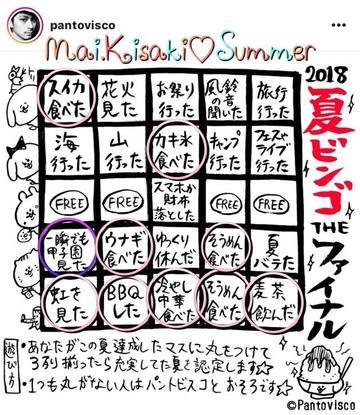 pantovisco
Mai.Kisaki♡Summer
2018
夏ビンゴ
THE
ファイナル
スイカ
食べた
花火
見た
お祭り
行った
風鈴
の音
聞いた
旅行
行った
海
行った
山
行った
カキ氷
食べた
キャンプ
行った
フェスや
ライブ
行った
FREE
FREE
スマホか
財布
落とした
FREE
FREE
一瞬でも
甲子園
見た
ウナギ
食べた
ゆっくり
休んだ
そうめん
食べた
夏
バテた
虹を
見た
BBQ
した
冷やし
中華
食べた
そうめん
食べた
麦茶
飲んだ
遊び方
・あなたがこの夏達成したマスに丸をつけて
3列揃ったら充実してた夏を認定します☆
・1つも丸がない人はパントビスコとおそろです☆
©Pantovisco